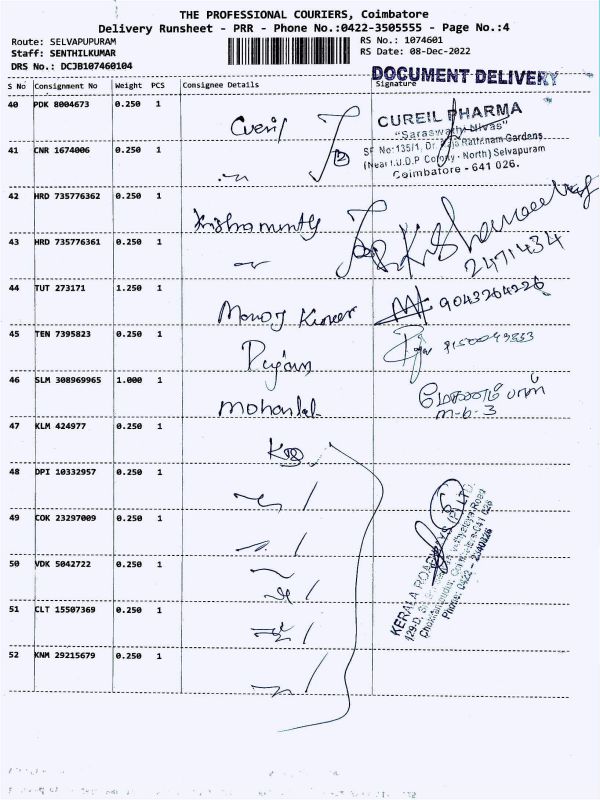 THE PROFESSIONAL COURIERS, Coimbatore
Delivery Runsheet - PRR - Phone No.:0422-3505555 - Page No.:4
Route: SELVAPUPURAM
RS No.: 1074601
Staff: SENTHILKUMAR
RS Date: 08-Dec-2022
DRS No.: DCJB107460104
DOCUMENT DELIVERY
S No Consignment No Weight PCS Consignee Details Signature
40 PDK 8004673 0.250 1
CUREIL PHARMA
"Saraswathy Nivas"
SF No:135/1, Dr. Raja Rathnam Gardens
(Near I.U.D.P Colony - North) Selvapuram
Coimbatore - 641 026.
41 CNR 1674006 0.250 1
42 HRD 735776362 0.250 1
Krishnamurthy
43 HRD 735776361 0.250 1
2471434
44 TUT 273171 1.250 1
Manoj Kumar 9043264226
45 TEN 7395823 0.250 1
46 SLM 308969965 1.000 1
Mohanlal
m-b-3
47 KLM 424977 0.250 1
48 DPI 10332957 0.250 1
49 COK 23297009 0.250 1
50 VDK 5042722 0.250 1
51 CLT 15507369 0.250 1
52 KNM 29215679 0.250 1
KERALA ROADWAYS (P) LTD.
Phone: 0422 -